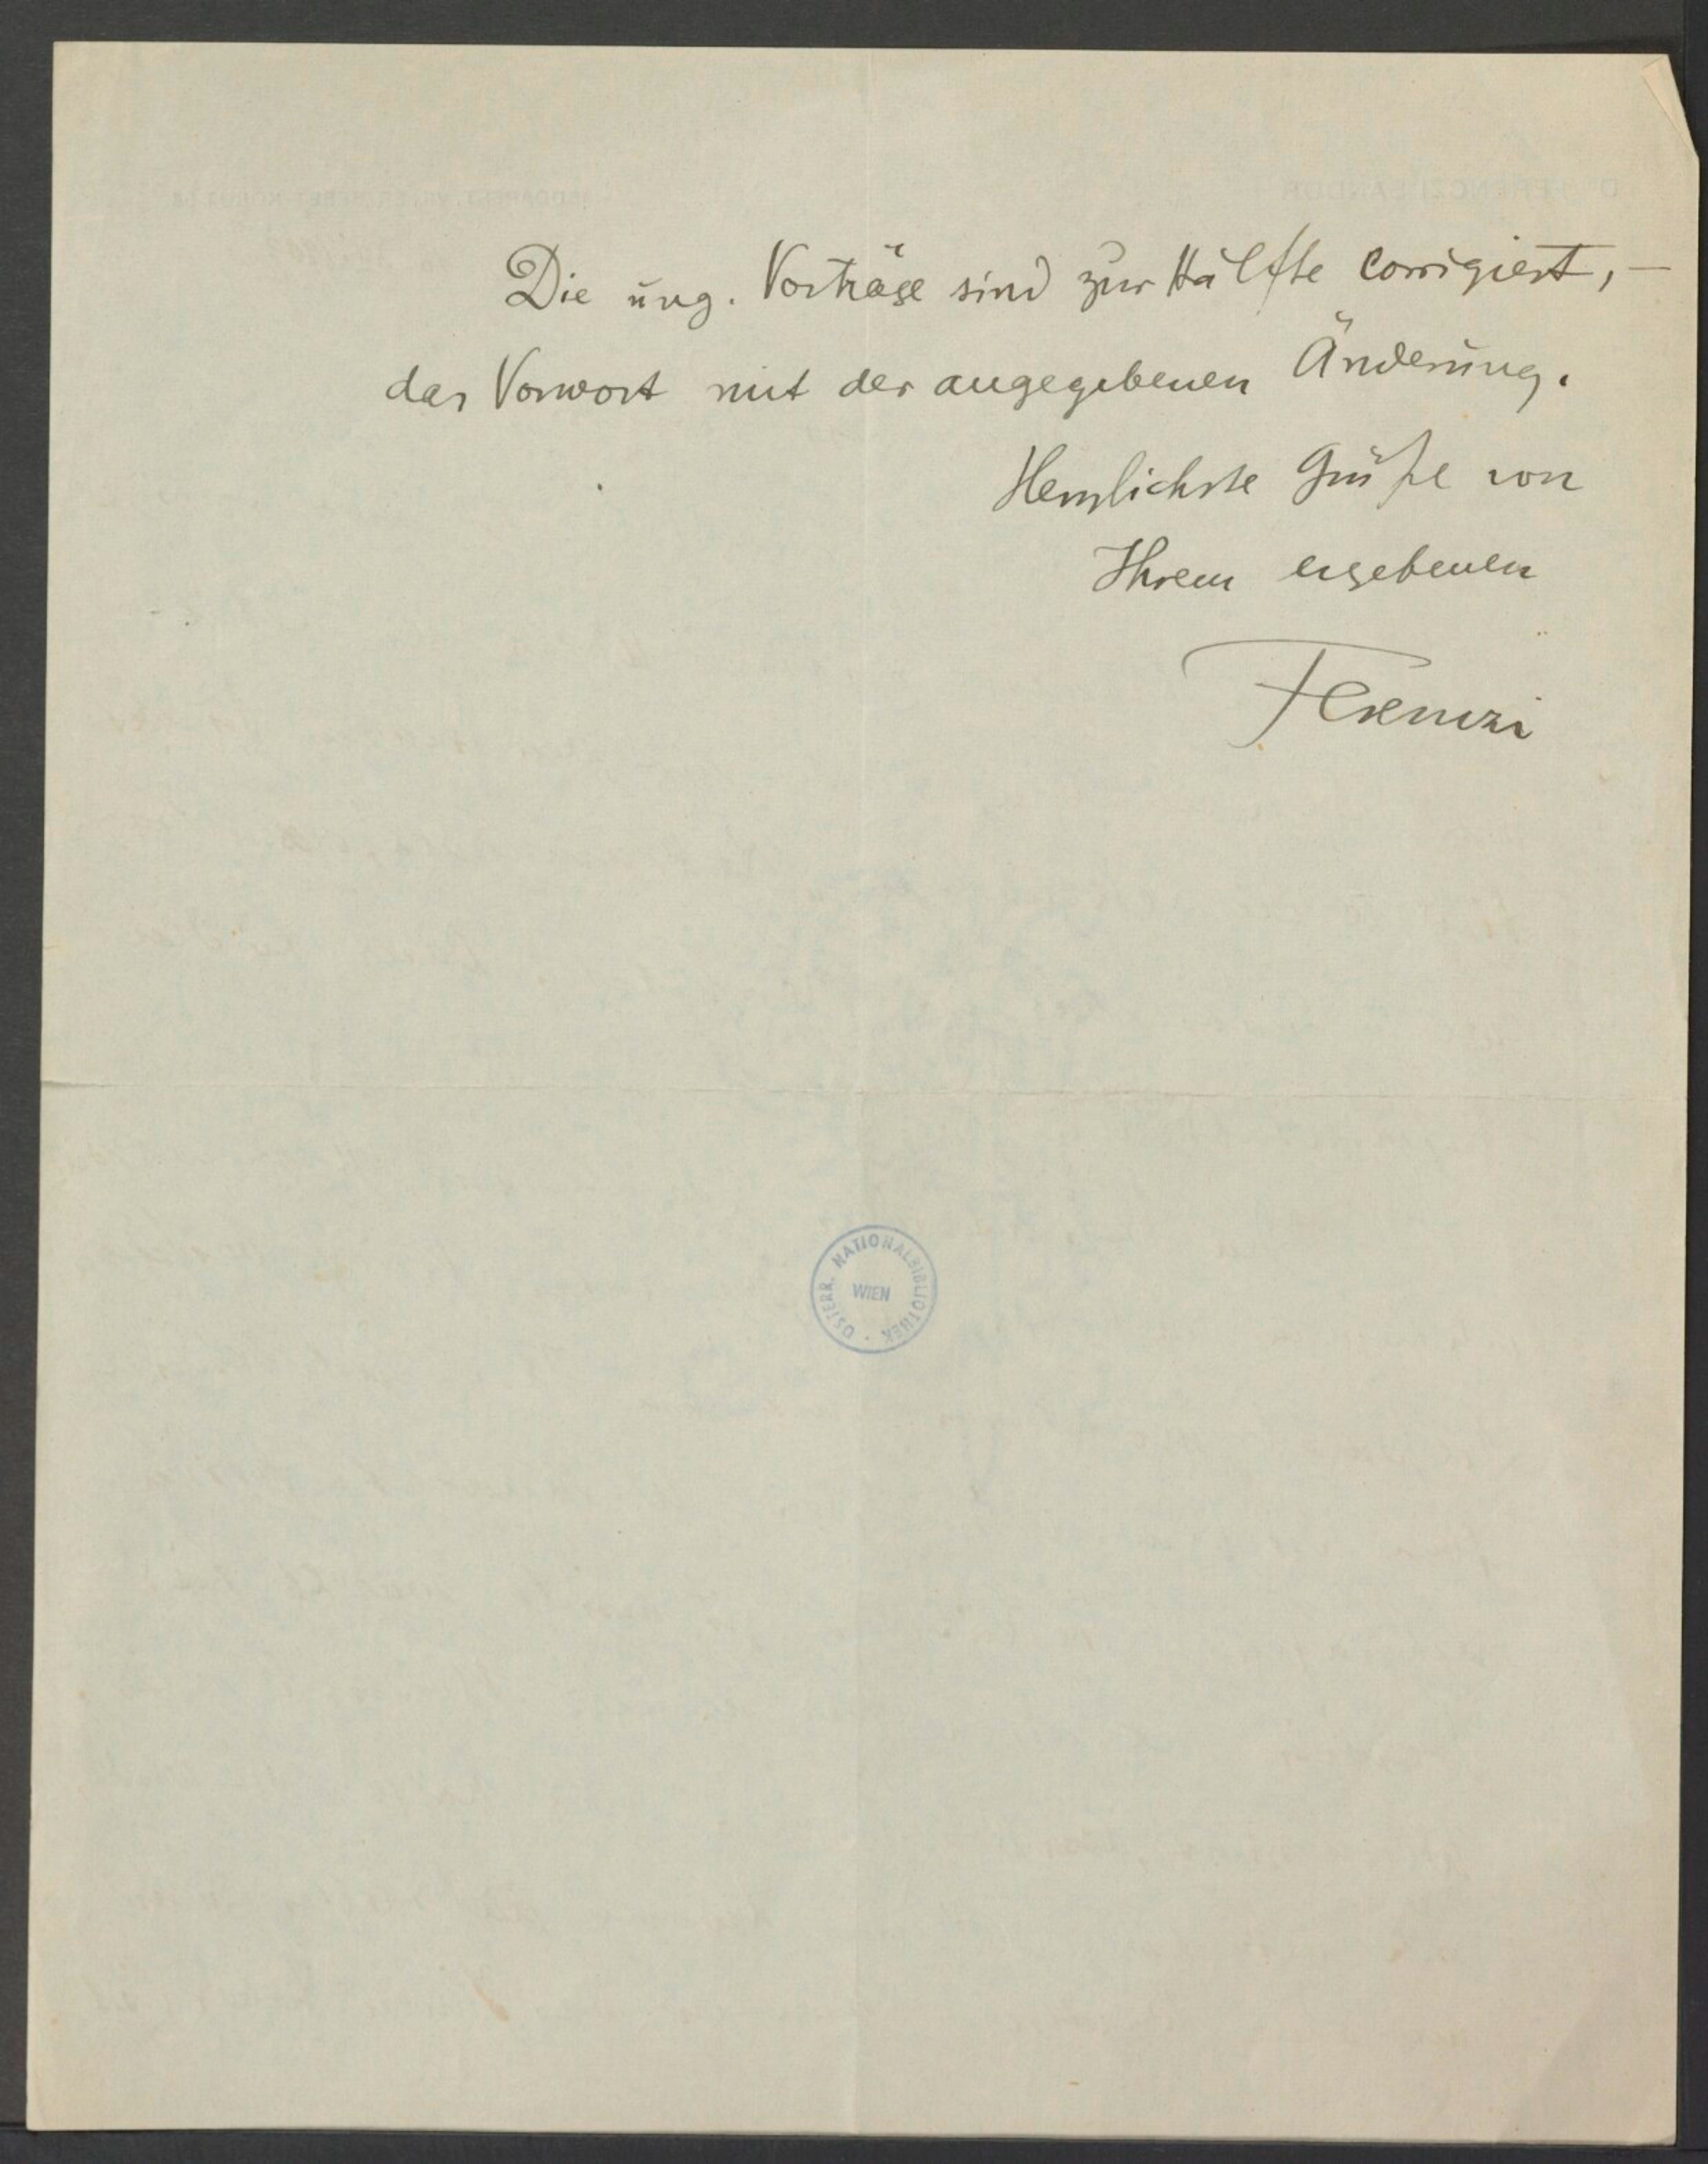 Die ung. Vorträge sind zur Hälfte corrigiert, –
das Vorwort mit der angegebenen Änderung.
Herzlichste Grüße von
Ihrem ergebenen
Ferenczi
ÖSTERR. NATIONALBIBLIOTHEK
WIEN